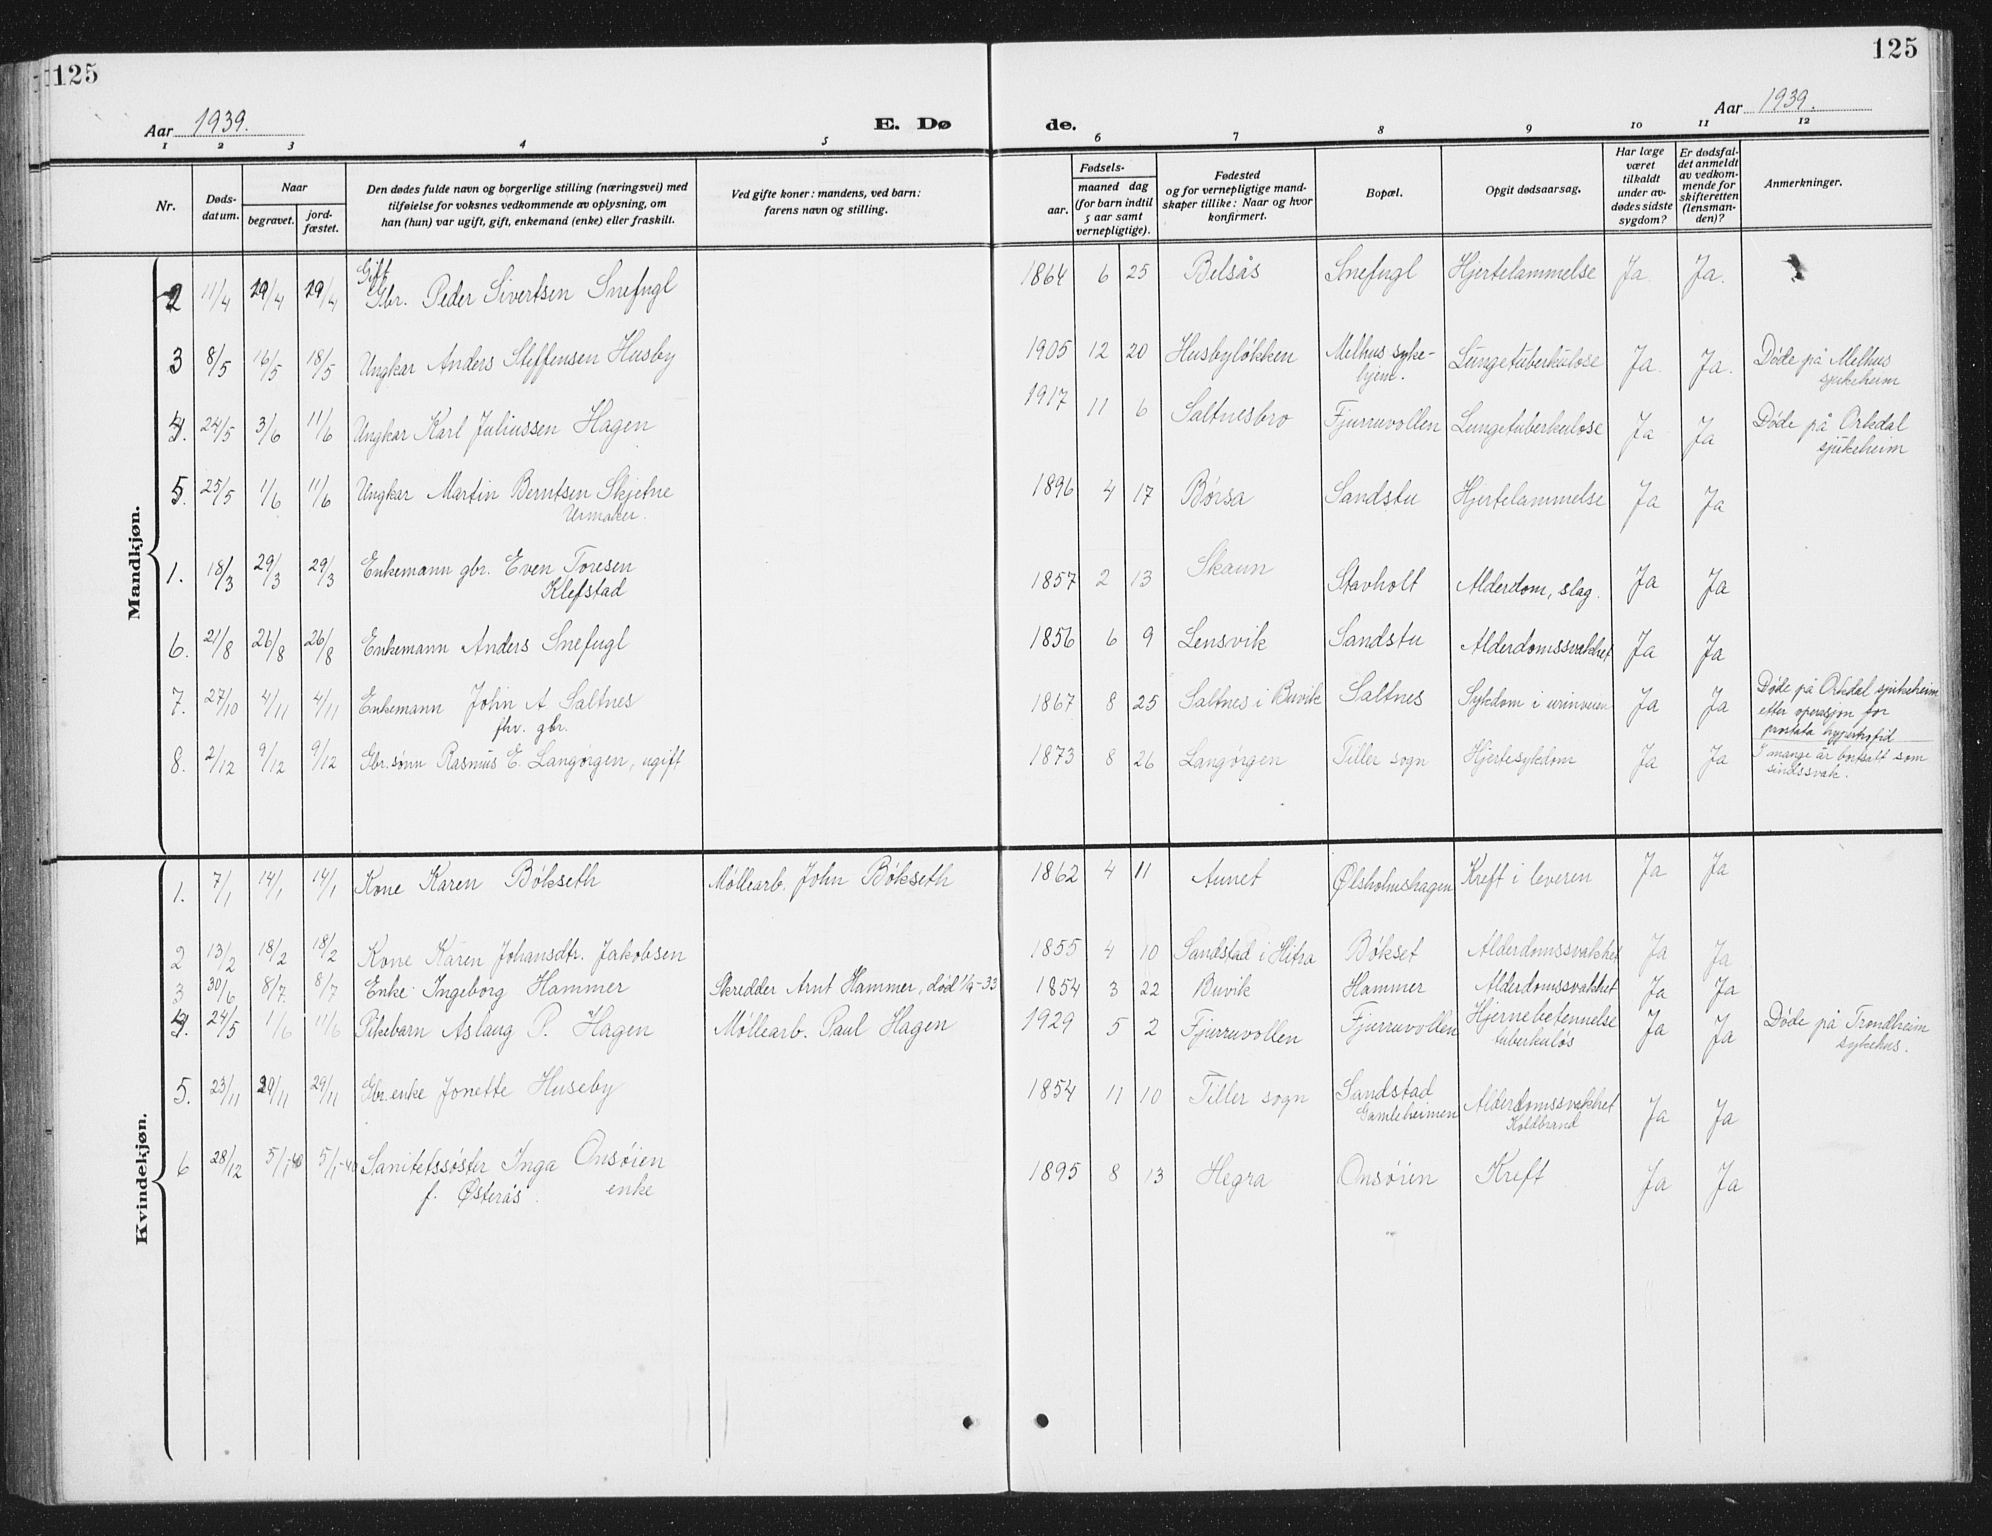 125
125
Aar 1939.
E. Døde.
Aar 1939.
1 2 3 4 5 6 7 8 9 10 11 12
Nr.
Døds-
datum.
Naar
begravet.
jord-
fæstet.
Den dødes fulde navn og borgerlige stilling (næringsvei) med
tilføielse for voksnes vedkommende av oplysning, om
han (hun) var ugift, gift, enkemand (enke) eller fraskilt.
Ved gifte koner: mandens, ved barn:
farens navn og stilling.
Fødsels-
aar.
maaned dag
(for barn indtil
5 aar samt
vernepligtige).
Fødested
og for vernepligtige mand-
skaper tillike: Naar og hvor
konfirmert.
Bopæl.
Opgit dødsaarsag.
Har læge
været
tilkaldt
under av-
dødes sidste
sygdom?
Er dødsfal-
det anmeldt
av vedkom-
mende for
skifteretten
(lensman-
den)?
Anmerkninger.
Mandkjøn.
Gift
2 11/4 19/4 19/4 Gbr. Peder Sivertsen Snefugl 1864 6 25 Belsås Snefugl Hjertelammelse Ja. Ja.
3 8/5 16/5 18/5 Ungkar Anders Steffensen Husby 1905 12 20 Husbyløkken Melhus syke-
hjem. Lungetuberkulose Ja. Ja. Døde på Melhus
sjukeheim
4. 24/5 3/6 11/6 Ungkar Karl Juliussen Hagen 1917 11 6 Saltnesbro Fjurruvollen Lungetuberkulose Ja Ja Døde på Orkdal
sjukeheim
5. 25/5 1/6 11/6 Ungkar Martin Berntsen Skjetne
Urmaker. 1896 4 17 Børsa Sandstu Hjertelammelse Ja Ja
1. 18/3 29/3 29/3 Enkemann gbr. Even Toresen
Klefstad 1857 2 13 Skaun Stavholt Alderdom, slag. Ja Ja
6. 21/8 26/8 26/8 Enkemann Anders Snefugl 1856 6 9 Lensvik Sandstu Alderdomssvakhet Ja Ja
7. 27/10 4/11 4/11 Enkemann John A. Saltnes
fhv. gbr. 1867 8 25 Saltnes i Buvik Saltnes Sykdom i urinveien Ja Ja Døde på Orkdal sjukeheim
etter operasjon for
prostata hypertrofid
8. 2/12 9/12 9/12 Gbr.sønn Rasmus E. Langørgen, ugift 1873 8 26 Langørgen Tiller sogn Hjertesykdom Ja Ja I mange år bortsatt som
sindssvak.
Kvindekjøn.
1. 7/1 14/1 14/1 Kone Karen Bökseth Møllearb. John Bökseth 1862 4 11 Aunet Ølsholmshagen Kreft i leveren Ja Ja
2 13/2 18/2 18/2 Kone Karen Johansdtr. Jakobsen 1855 4 10 Sandstad i Hitra Bökset Alderdomssvakhet Ja Ja
3 30/6 8/7. 8/7 Enke Ingeborg Hammer Skredder Arnt Hammer, død -33 1854 3 22 Buvik Hammer Alderdomssvakhet Ja Ja
4. 24/5 1/6 11/6 Pikebarn Aslaug P. Hagen Møllearb. Paul Hagen 1929 5 2 Fjurruvollen Fjurruvollen Hjernebetennelse
tuberkuløs Ja Ja Døde på Trondheim
sykehus.
5. 23/11 29/11 29/11 Gbr.enke Jonette Huseby 1854 11 10 Tiller sogn Sandstad
Gamleheimen Alderdomssvakhet
Koldbrand Ja Ja
6 28/12 5/1-40 5/1-40 Sanitetssøster Inga Onsøien
f. Østerås. enke 1895 8 13 Hegra Onsøien Kreft Ja Ja